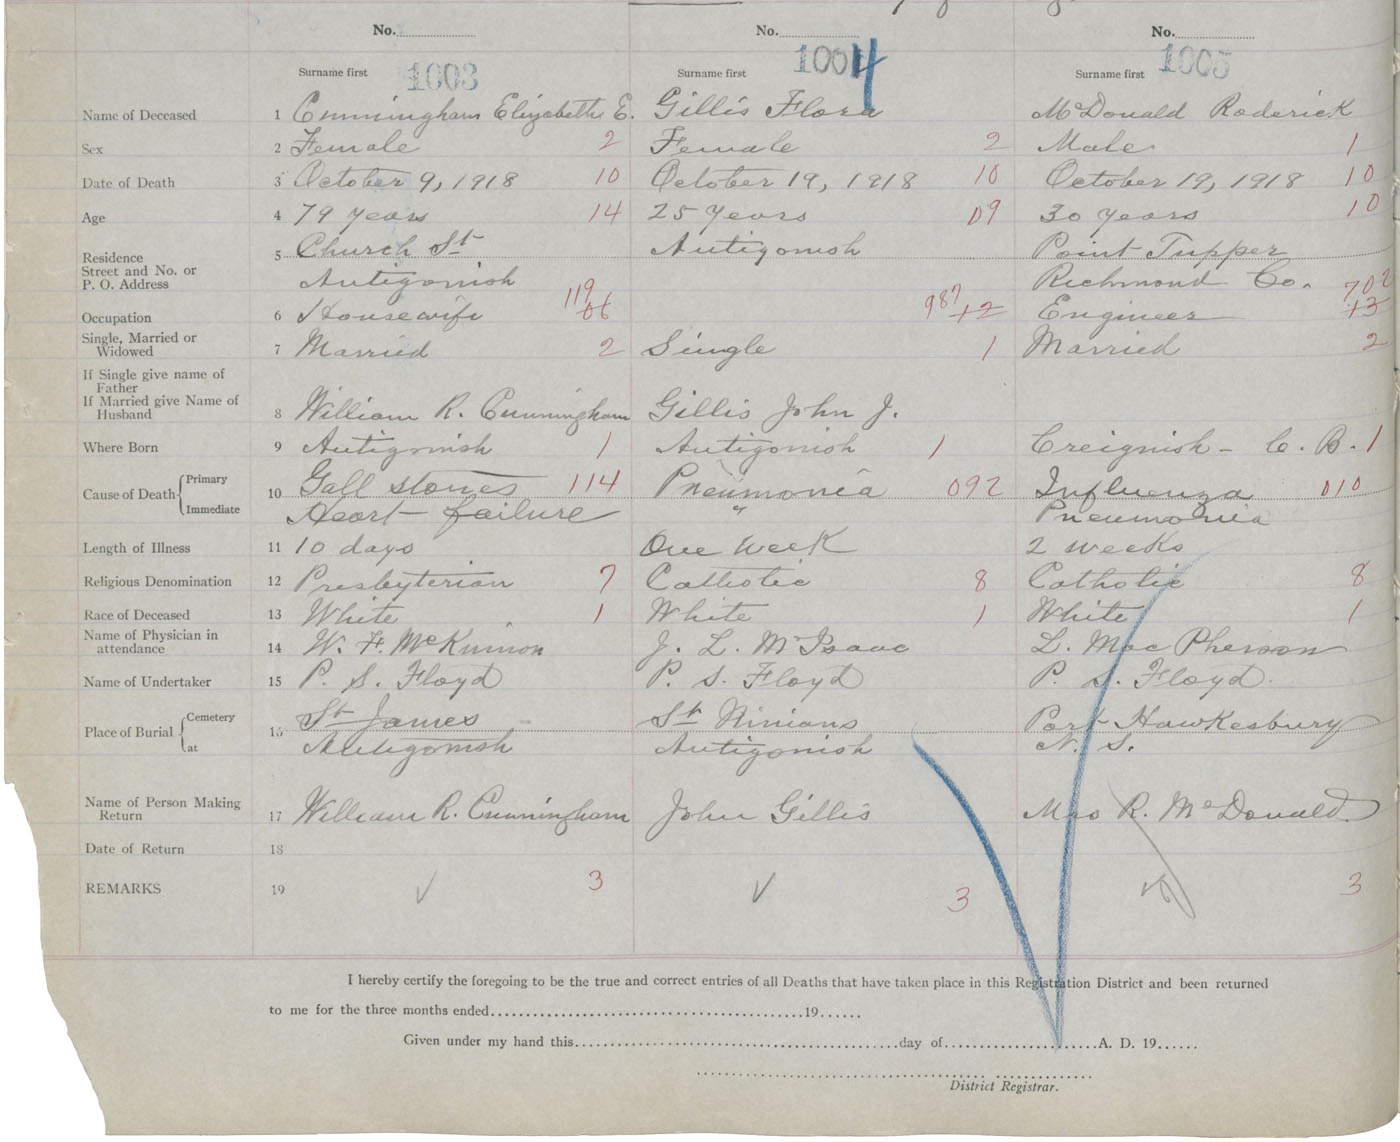 No. No. No.
1003 1004 1005
Surname first Surname first Surname first
Name of Deceased 1 Cunningham Elizabeth E. Gillis Flora McDonald Roderick
Sex 2 Female 2 Female 2 Male 1
Date of Death 3 October 9, 1918 10 October 19, 1918 10 October 19, 1918 10
Age 4 79 years 14 25 years 09 30 years 10
Residence 5 Church St Antigonish Point Tupper
Street and No. or
P. O. Address Antigonish Richmond Co.
119 987 702
Occupation 6 Housewife 06 12 Engineer 13
Single, Married or
Widowed 7 Married 2 Single 1 Married 2
If Single give name of
Father
If Married give Name of
Husband 8 William R. Cunningham Gillis John J.
Where Born 9 Antigonish 1 Antigonish 1 Creignish - C. B. 1
Cause of Death Primary 10 Gall stones 114 Pneumonia 092 Influenza 010
Immediate Heart failure " Pneumonia
Length of Illness 11 10 days One week 2 weeks
Religious Denomination 12 Presbyterian 7 Catholic 8 Catholic 8
Race of Deceased 13 White 1 White 1 White 1
Name of Physician in
attendance 14 W. F. McKinnon J. L. McIsaac L. MacPherson
Name of Undertaker 15 P. S. Floyd P. S. Floyd P. S. Floyd.
Place of Burial Cemetery 16 St James St Ninians Port Hawkesbury
at Antigonish Antigonish N. S.
Name of Person Making
Return 17 William R. Cunningham John Gillis Mrs R. McDonald.
Date of Return 18
REMARKS 19 3 3 3
I hereby certify the foregoing to be the true and correct entries of all Deaths that have taken place in this Registration District and been returned
to me for the three months ended 19
Given under my hand this day of A. D. 19
District Registrar.